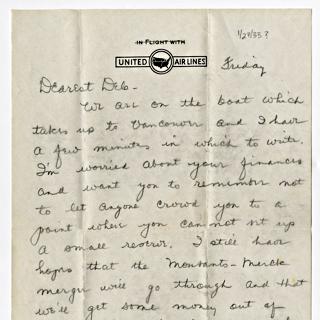 IN FLIGHT WITH
UNITED AIR LINES
1/27/33?
Friday
Dearest Deb-
We are on the boat which
takes up to Vancouver and I have
a few minutes in which to write.
I'm worried about your finances
and want you to remember not
to let anyone crowd you to a
point where you can not set up
a small reserve. I still have
hopes that the Monsanto-Merck
merger will go through and that
we'll get some money out of